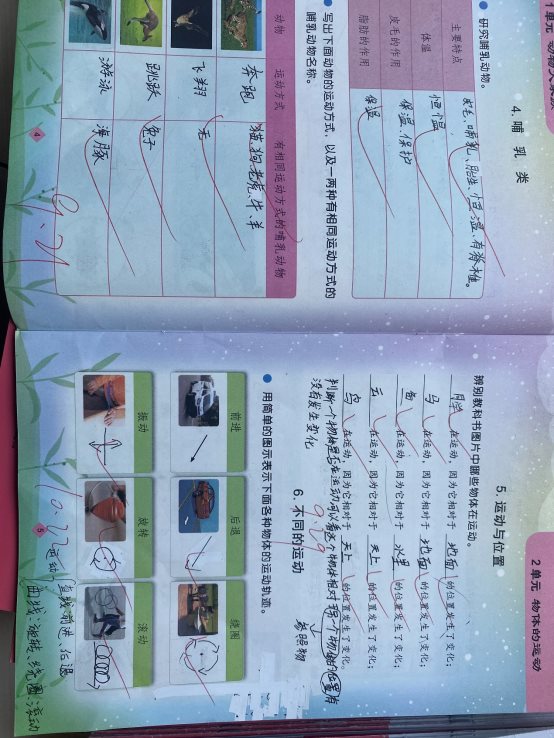 1单元 动物大家
4. 哺乳类
研究哺乳动物。
主要特点 皮毛、哺乳、胎生、恒温、有脊椎。
体温 恒温
皮毛的作用 保温、保护
脂肪的作用 保温
写出下面动物的运动方式,以及一两种有相同运动方式的
哺乳动物名称。
动物 运动方式 有相同运动方式的哺乳动物
奔跑 猫、狗、老虎、牛、羊
飞翔 无
跳跃 兔子
游泳 海豚
9.21
4
2单元 物体的运动
5. 运动与位置
辨别教科书图片中哪些物体在运动。
同学 在运动,因为它相对于 地面 的位置发生了变化;
马 在运动,因为它相对于 地面 的位置发生了变化;
鱼 在运动,因为它相对于 水里 的位置发生了变化;
云 在运动,因为它相对于 天上 的位置发生了变化;
鸟 在运动,因为它相对于 天上 的位置发生了变化。
判断一个物体是否在运动,可以看这个物体相对于另一个物体的位置有
没有发生变化
参照物
9.29
6. 不同的运动
用简单的图示表示下面各种物体的运动轨迹。
前进 后退 绕圈
振动 旋转 滚动
10.22
直线:前进、后退
曲线:旋转、绕圈、滚动
5